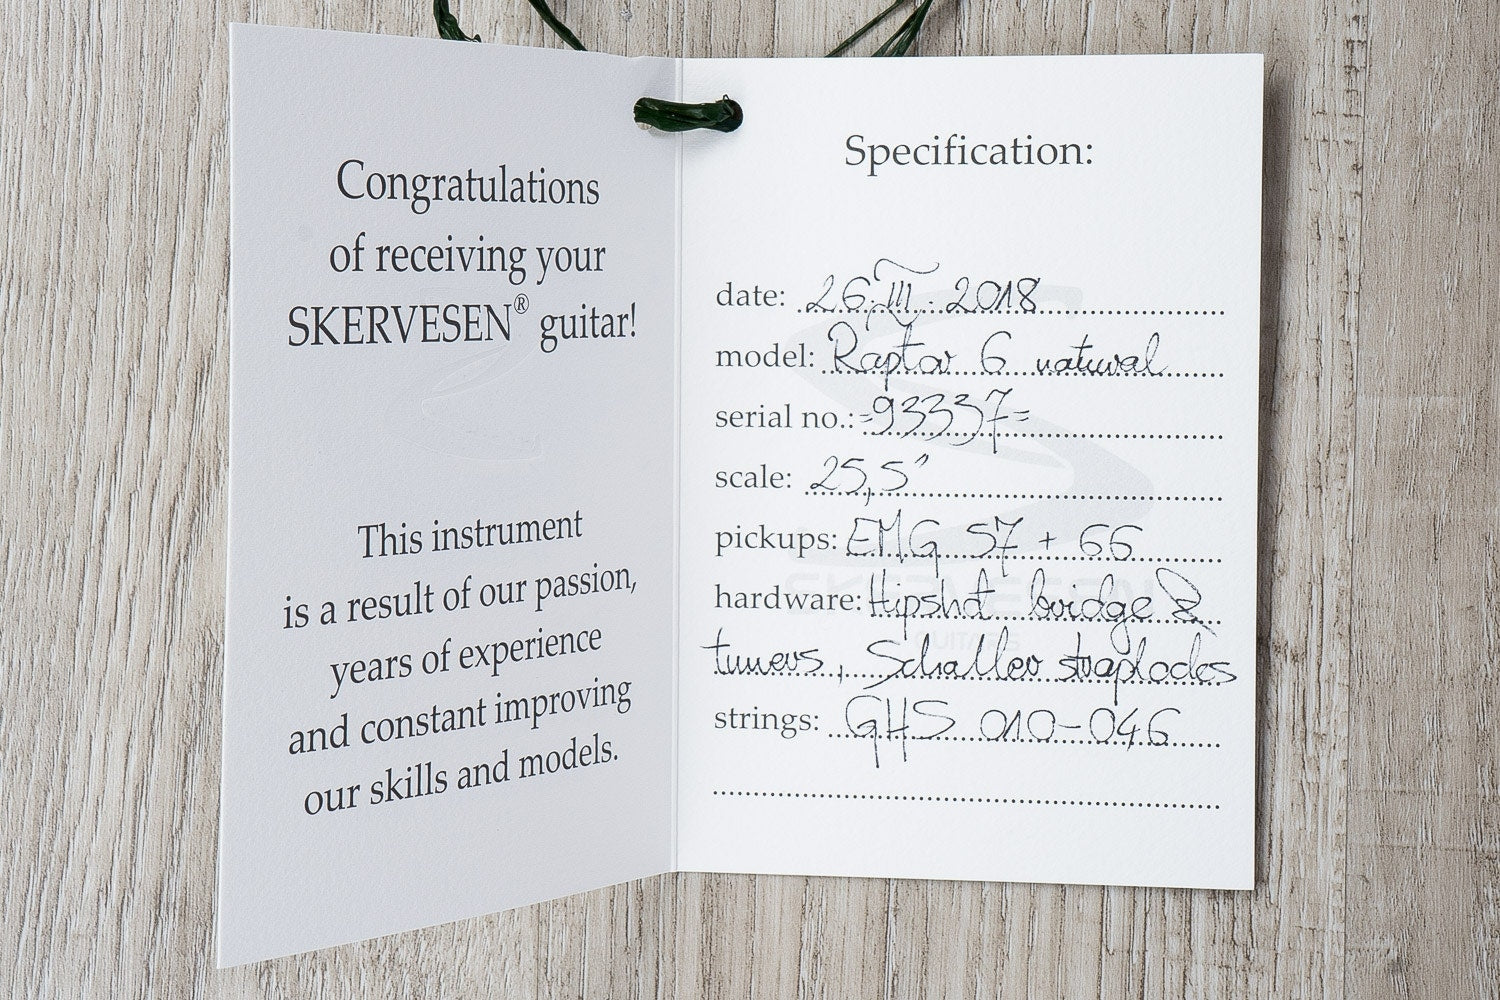 Congratulations
of receiving your
SKERVESEN® guitar!
This instrument
is a result of our passion,
years of experience
and constant improving
our skills and models.
Specification:
date: 26.III.2018
model: Raptor 6 natural
serial no.: =93337=
scale: 25,5"
pickups: EMG 57 + 66
hardware: Hipshot bridge &
tuners, Schaller straplocks
strings: GHS 010-046
SKERVESEN
GUITARS